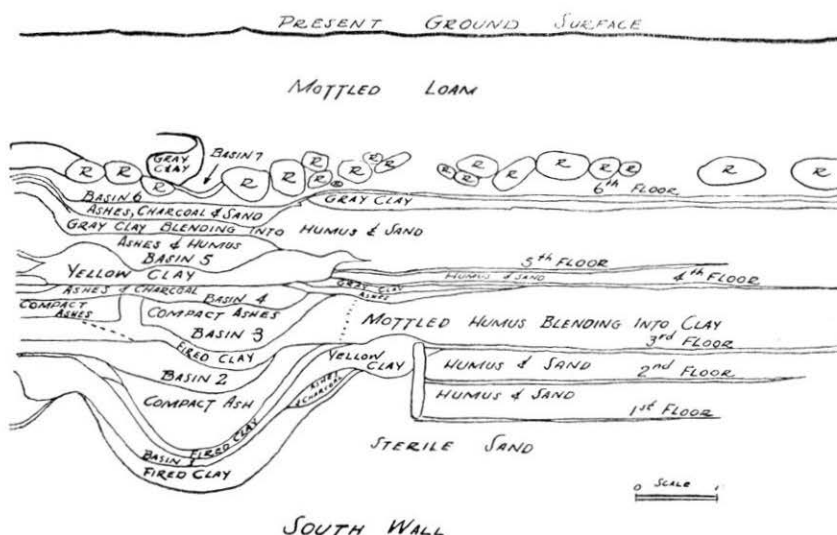 PRESENT GROUND SURFACE
MOTTLED LOAM
GRAY CLAY
BASIN 7
R R R R R R R R R R R R R R R R R R R R R
6th FLOOR
BASIN 6
GRAY CLAY
ASHES, CHARCOAL & SAND
GRAY CLAY BLENDING INTO HUMUS & SAND
ASHES & HUMUS
BASIN 5
5th FLOOR
YELLOW CLAY
HUMUS & SAND
4th FLOOR
GRAY CLAY
ASHES & CHARCOAL
ASHES
BASIN 4
COMPACT ASHES
COMPACT ASHES
MOTTLED HUMUS BLENDING INTO CLAY
BASIN 3
3rd FLOOR
FIRED CLAY
YELLOW CLAY
HUMUS & SAND
2nd FLOOR
BASIN 2
ASHES & CHARCOAL
HUMUS & SAND
COMPACT ASH
1st FLOOR
FIRED CLAY
STERILE SAND
BASIN 1
FIRED CLAY
0 SCALE 1
SOUTH WALL